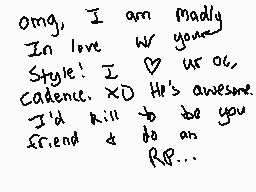 omg, I am madly
In love w/ your
style! I ♡ ur oc,
cadence. XD He's awesome.
I'd kill to be you
friend & do an
RP...